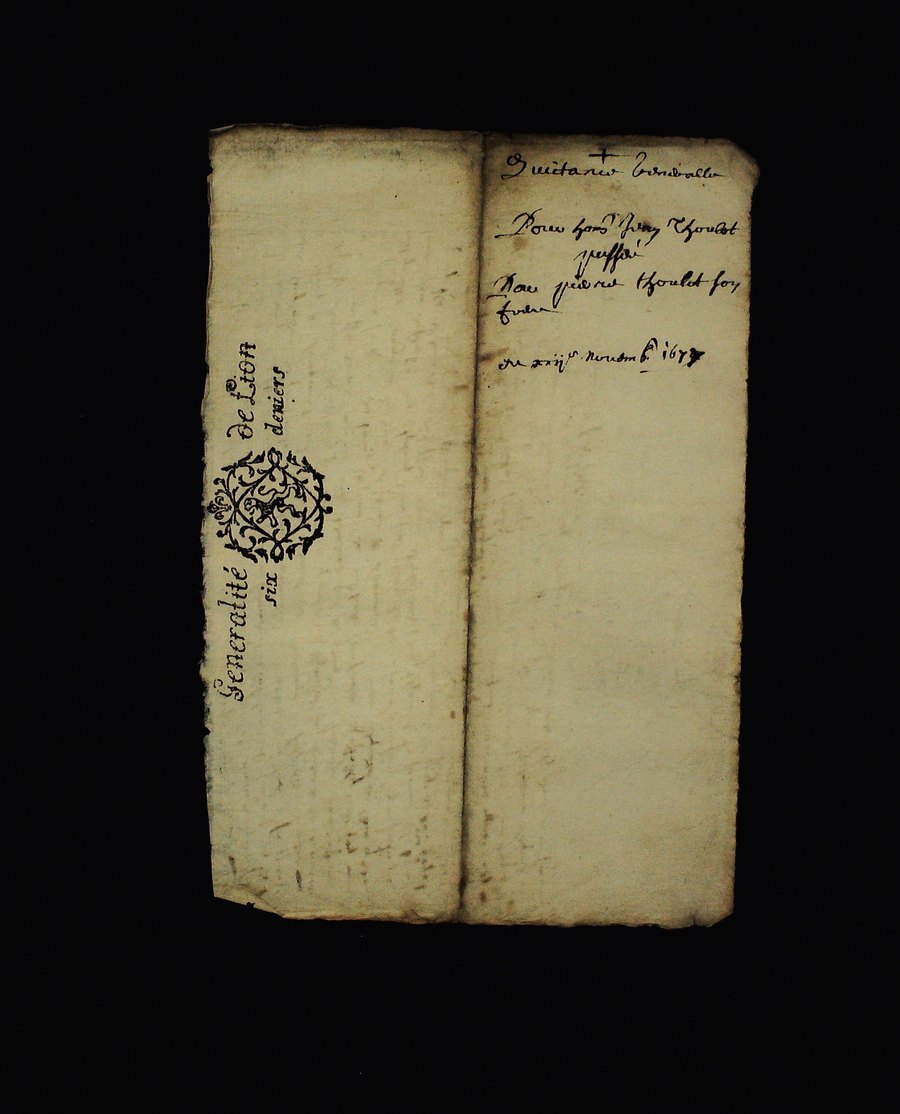 Generalité de Lion
six deniers
+
Quitance Generalle
Pour hon^s Jean Thoulot
passée
Par pierre thoulot son
frere
du xiij^e novemb^e 167